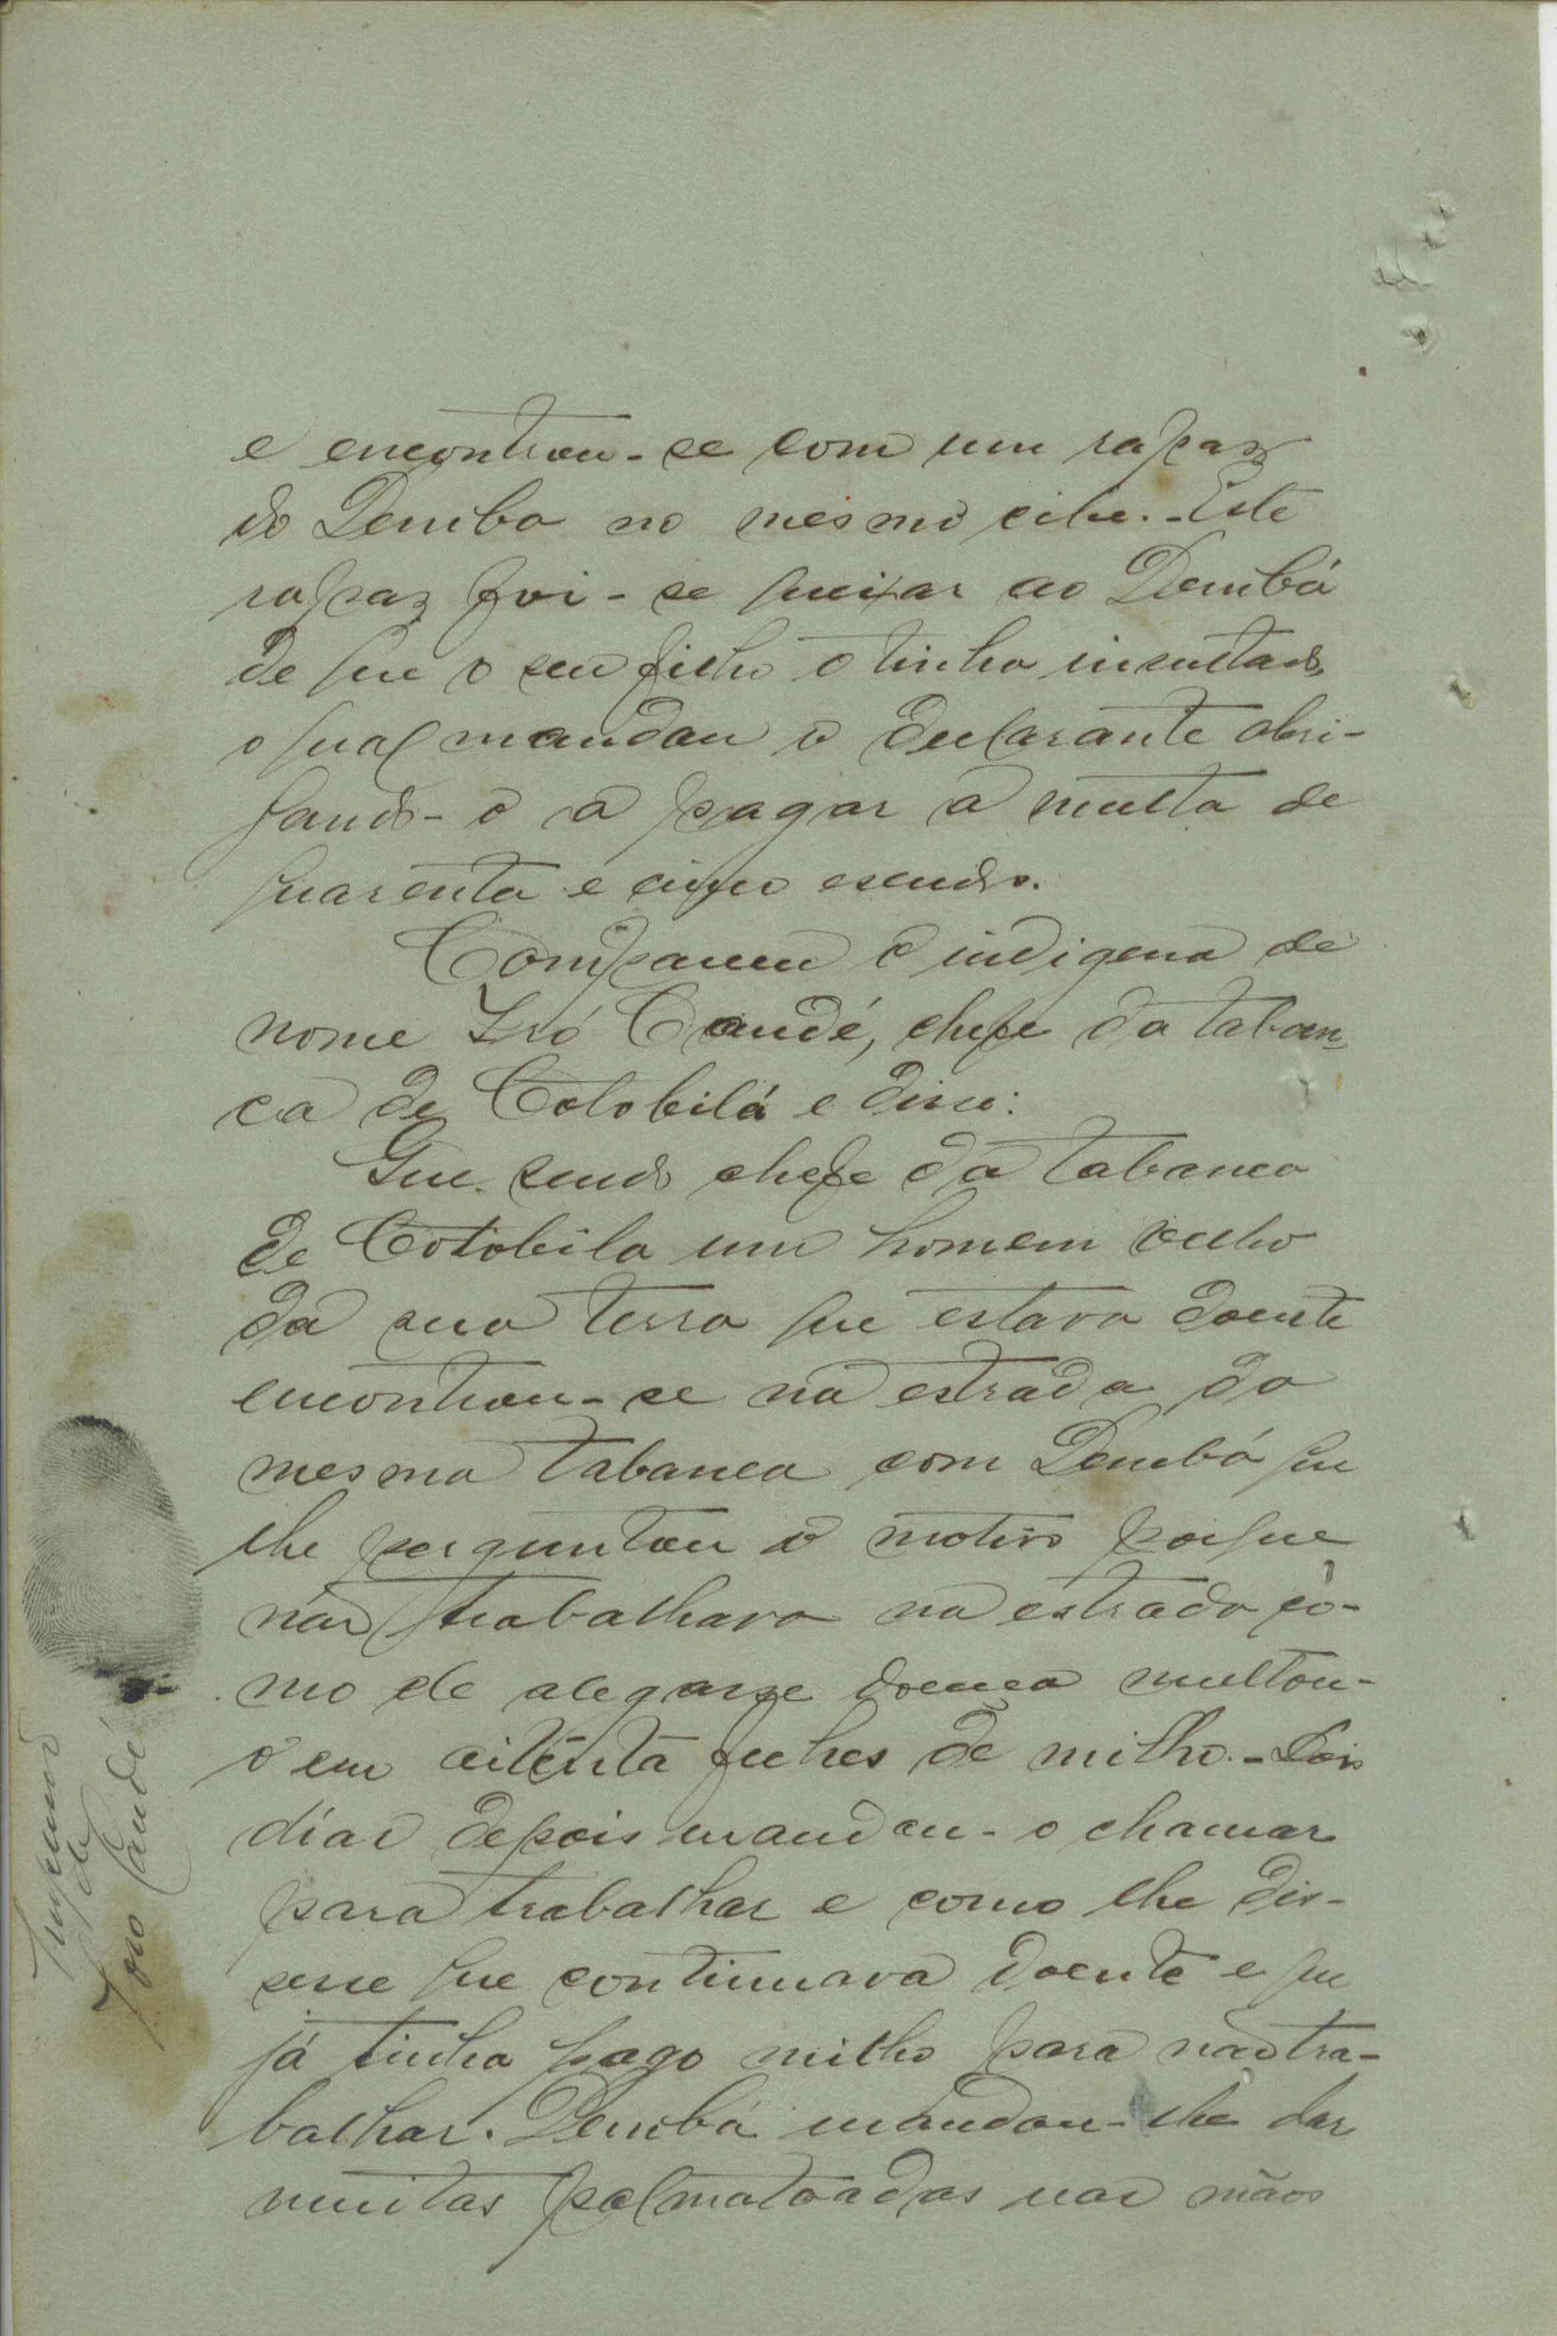 e encontrou-se com um rapaz
do Demba no mesmo cibe. - Este
rapaz foi-se queixar ao Dembá
de que o seu filho o tinha insultado,
o qual mandou o declarante obri-
gando-o a pagar a multa de
quarenta e cinco escudos.
Compareceu o indigena de
nome Iró Candé, chefe da taban
ca de Cotobilá e disse:
Que sendo chefe da tabanca
de Cotobila um homem velho
da sua terra que estava doente
encontrou-se na estrada da
mesma tabanca com Dembá que
lhe perguntou o motivo porque
não trabalhava na estrada co-
mo ele alegasse doença multou-
o em oitenta folhes de milho. - Dois
dias depois mandou-o chamar
para trabalhar e como lhe dis-
sesse que continuava doente e que
já tinha pago milho para não tra-
balhar. Dembá mandou-lhe dar
muitas palmatoadas nas mãos
Impressão
do
Iró Candé